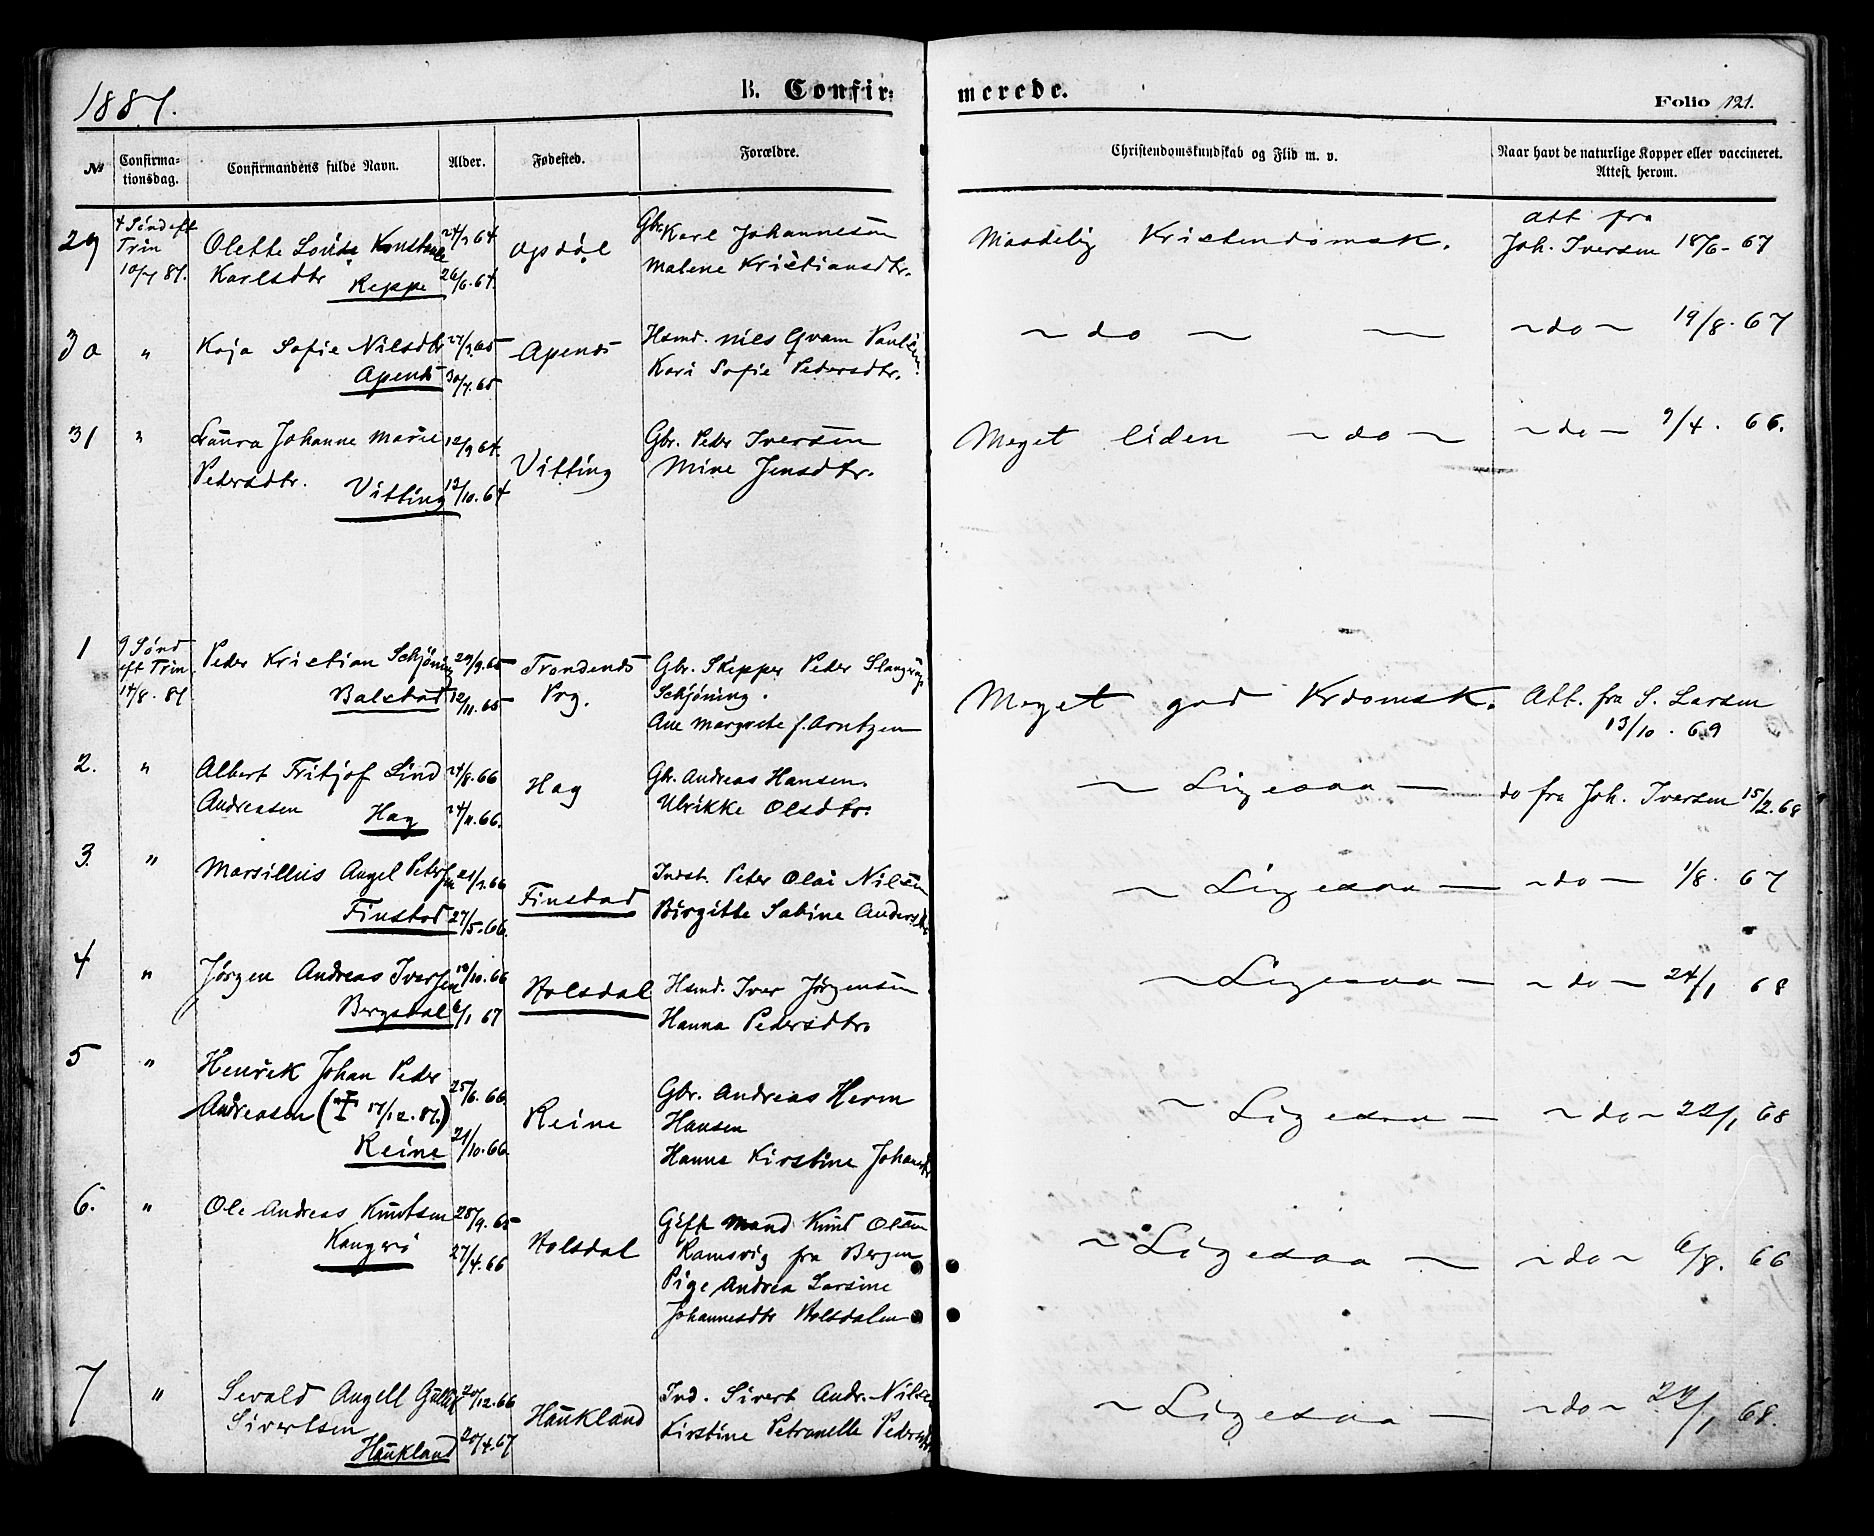 1881.
B. Confirmerede.
Folio 121.
№ Confirmationsdag. Confirmandens fulde Navn. Alder. Fødested. Forældre. Christendomskundskab og Flid m. v. Naar havt de naturlige Kopper eller vaccineret. Attest herom.
29 4 Sønd eft Trin 10/7 81. Olette Lovise Konstanse Karlsdtr Reppe 26/6.64. Opsdøl
Gbr. Karl Johannesen
Malene Kristiansdtr.
Maadelig Kristendomsk.
Att fra
Joh. Iversen 18/6-67
30 " Kaja Sofie Nilsdtr Apenes 30/7.65 Apenes
Hsmd. Nils Qvam Paulsen
Kari Sofie Pedersdtr.
~ do ~ —
~ do ~ 19/8.67
31 " Laura Johanne Marie 12/9 64.
Pedersdtr. Vitting 12/10.64 Vitting
Gbr. Peder Iversen
Mine Jensdtr.
Meget liden ~ do ~
~ do — 9/4. 66.
1 9 Sønd eft Trin. 14/8. 81. Peder Kristian Schjøning 29/9.65
Balstad 12/11.65 Trondenes Prg.
Gbr. Skipper Peder
Schjøning.
Ane Margrete f. Arntzen
Meget god Krdomsk.
Att. fra S. Larsen
13/10. 69
2. " Albert Fritjof Lind 24/8.66
Andreasen Hag 24/11.66. Hag
Gbr. Andreas Hansen.
Ulrikke Olsdtr.
~ Ligesaa —
do fra Joh. Iversen 15/2.68
3. " Marsillius Angel Petersen 21/2.66
Finstad 27/5.66. Finstad
Indst. Peter Olai Nilsen
Birgitte Sabine Andersdtr
~ Ligesaa —
~ do — 1/8. 67
4 " Jørgen Andreas Iversen 10/10.66
Bergsdal 6/1 67 Stolsdal
Hsmd. Iver Jørgensen
Hanna Pedersdtr.
~ Ligesaa —
~ do ~ 24/1 68
5 " Henrik Johan Peder
Andreasen († 17/12.81.) 25/6.66.
Reine 21/10.66. Reine
Gbr. Andreas Herm
Hansen
Hanna Kirstine Johansdtr
~ Ligesaa —
~ do ~ 22/1 68
6. " Ole Andreas Knutsen 28/9.65
Kangerø 27/4.66 Stolsdal
Gift Mand Knut Olsen
Ramsvig fra Bergen
Pige Andrea Larsine
Johannesdtr Stolsdalen
~ Ligesaa ~
~ do ~ 6/8. 66
7 " Sevald Angell 20/12.66
Sivertsen
Haukland 20/4.67 Haukland
Ind. Sivert Andr. Nilsen
Kirstine Petronelle Pedersdtr.
~ Ligesaa —
~ do ~ 22/1 68.